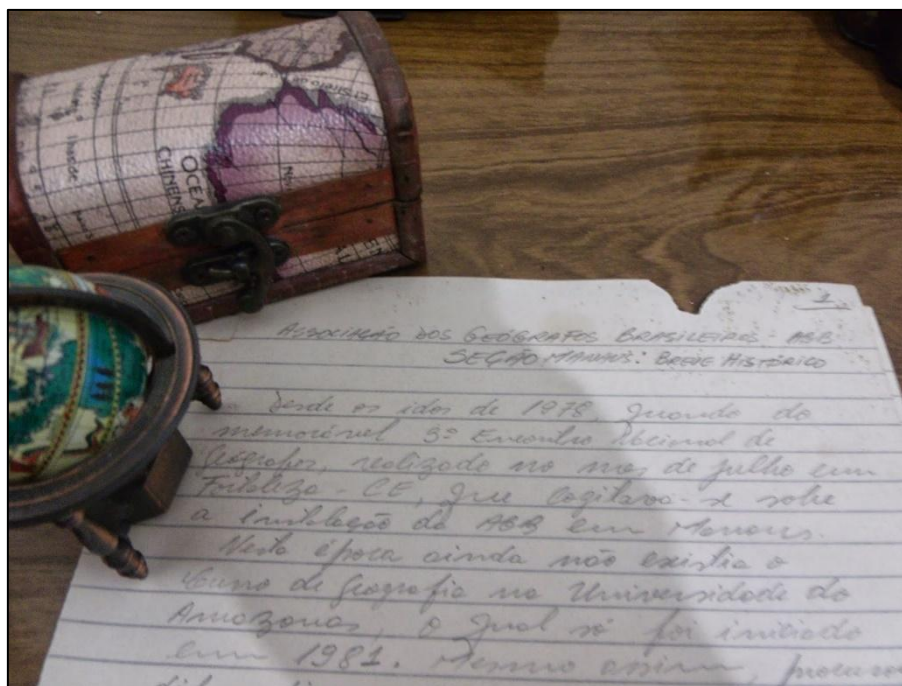 OCEA
CHINENS
1
ASSOCIAÇÃO DOS GEÓGRAFOS BRASILEIROS - AGB
SEÇÃO MANAUS: BREVE HISTÓRICO
Desde os idos de 1978, quando do
memorável 3º Encontro Nacional de
Geógrafos, realizado no mês de julho em
Fortaleza - CE, que cogitava-se sobre
a instalação da AGB em Manaus.
Nesta época ainda não existia o
Curso de Geografia na Universidade do
Amazonas, o qual só foi iniciado
em 1981. Mesmo assim,